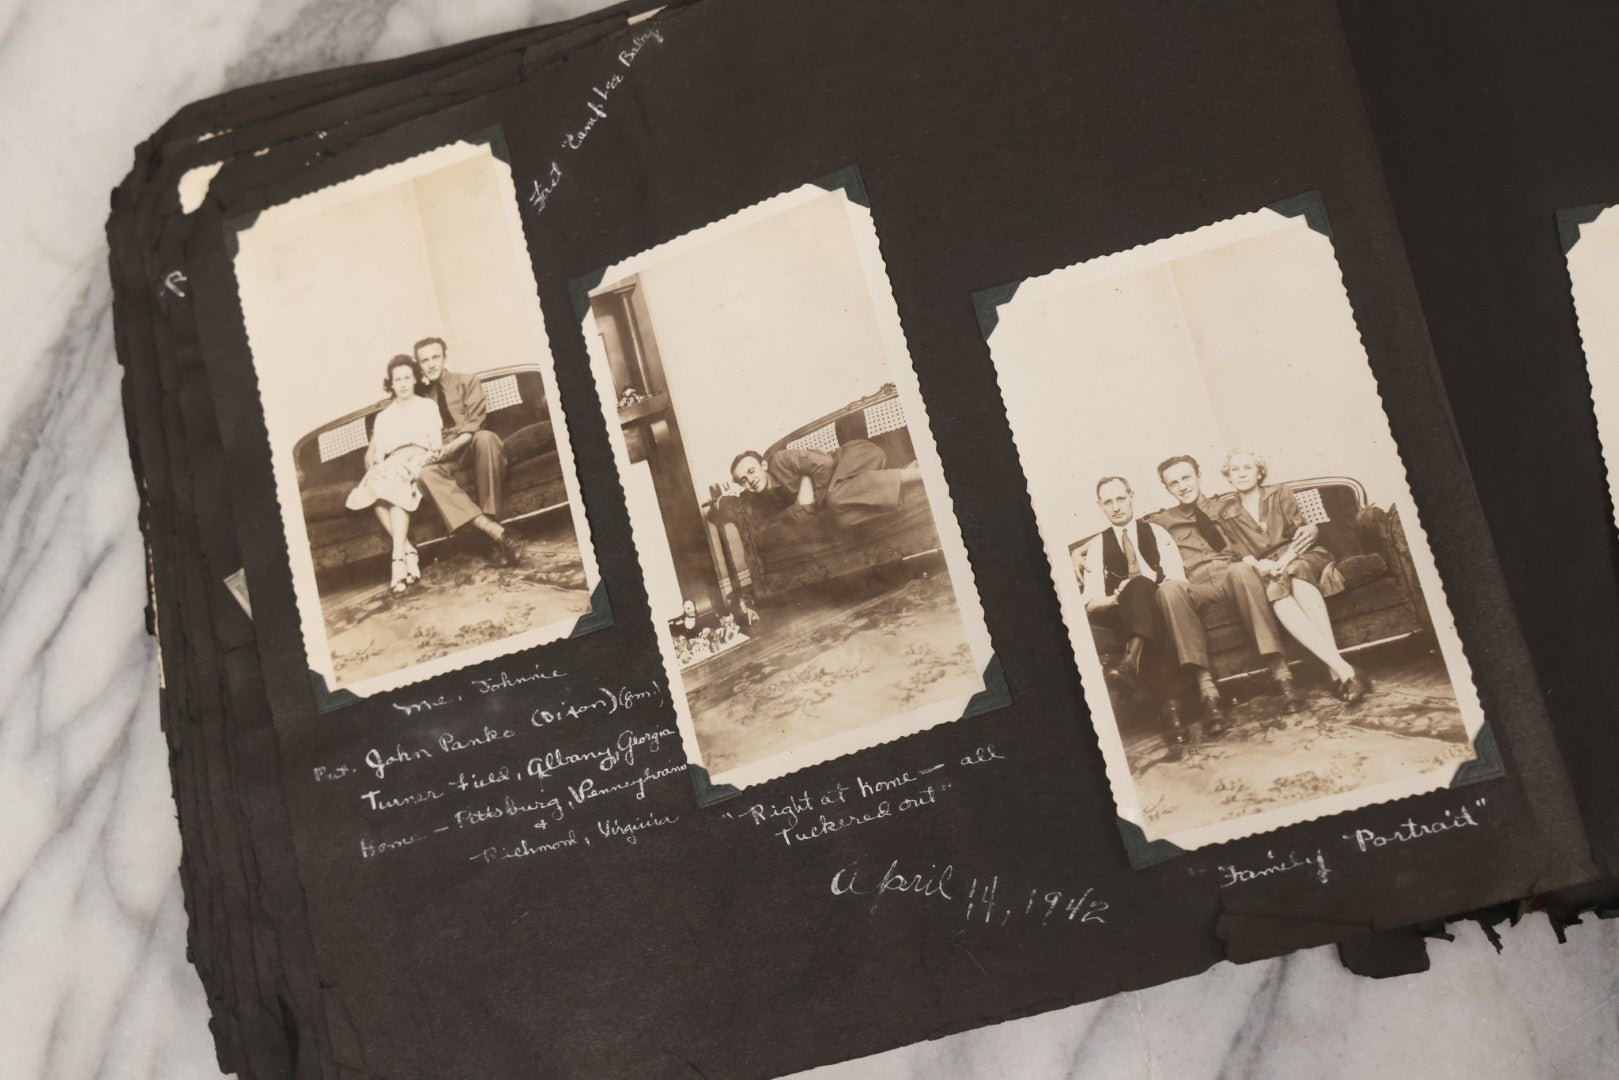 "Camphee Baby
Me, Johnnie
Pvt. John Panko (Dixon)
Turner Field, Albany, Georgia
Home — Pittsburg, Pennsylvania
+
Richmond, Virginia
"Right at home — all
Tuckered out"
April 14, 1942
"Family Portrait"